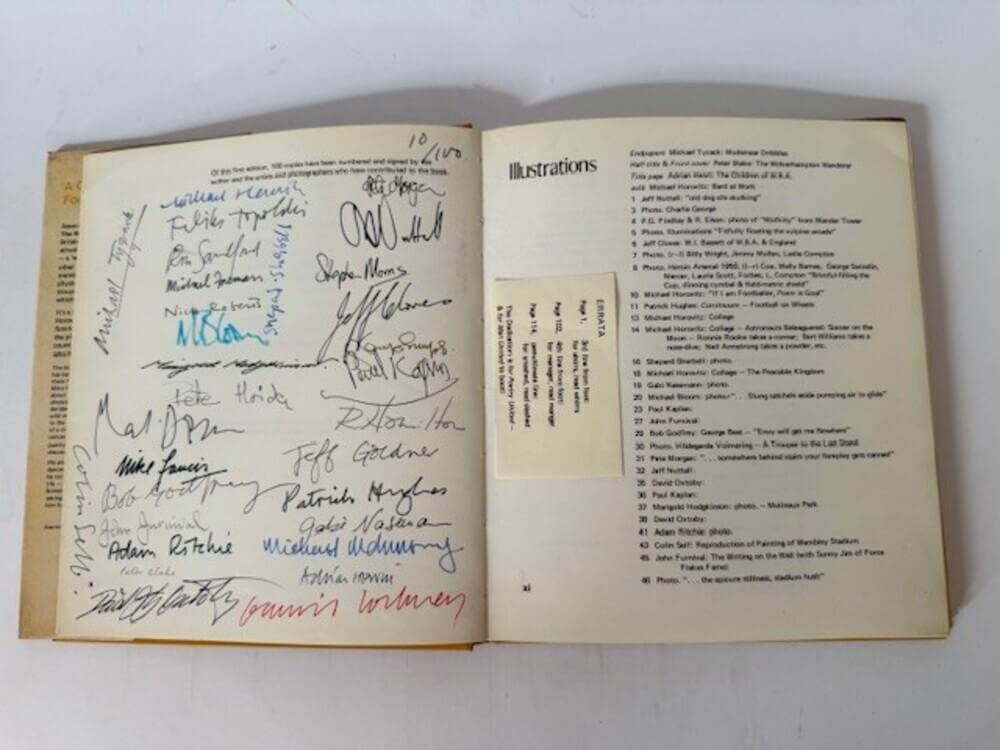 10/100
Of this first edition, 100 copies have been numbered and signed by the
author and the artists and photographers who have contributed to the book.
Michael Tyzack
Michael Horovitz
Feliks Topolski
Pete Morgan
Jeff Nuttall
Michael Freeman
Nick Roberts
Stephen Morris
Jeff Cloves
Paul Kaplan
Pete Hoida
R Hamilton
Jeff Goldner
Mike Francis
Bob Godfrey
Patrick Hughes
Gabi Nasemann
John Furnival
Adam Ritchie
Colin Self
Peter Blake
Adrian Henri
Illustrations
Endpapers Michael Tyzack:
Half title & Front cover Peter Blake: The Wolverhampton Wanderer
Title page Adrian Henri: The Children of W.B.A.
xviii Michael Horovitz: Bard at Work
1 Jeff Nuttall: "old dog sits skulking"
3 Photo. Charlie George
4 P.G. Findlay & R. Eison: photo of "Wolfkitty" from Mander Tower
5 Photo. Illuminations: "Fitfully floating the vulpine arcade"
6 Jeff Cloves: W.I. Bassett of W.B.A. & England
7 Photo: (r–l) Billy Wright, Jimmy Mullen, Leslie Compton
8 Photo. Heroic Arsenal 1950, (l–r) Cox, Wally Barnes, George Swindin,
Mercer, Laurie Scott, Forbes, L. Compton "Brimful-filling the
Cup, dinning cymbal & field-metric shield"
10 Michael Horovitz: "If I am Footballer, Poem is Goal"
11 Patrick Hughes: Continuum — Football on Wheels
13 Michael Horovitz: Collage
14 Michael Horovitz: Collage – Astronauts Beleaguered: Soccer on the
Moon – Ronnie Rooke takes a corner: Bert Williams takes a
nose-dive: Neil Armstrong takes a powder, etc.
16 Shepard Sherbell: photo.
18 Michael Horovitz: Collage – The Peaceable Kingdom
19 Gabi Nasemann: photo.
20 Michael Bloom: photo — "... Slung ratchets aside pumping air to glide"
23 Paul Kaplan:
27 John Furnival:
29 Bob Godfrey: George Best – "Envy will get me Nowhere"
30 Photo. Hildegarde Volmering – A Trouper to the Last Stand
31 Pete Morgan: "... somewhere behind stain your foreplay gets canned"
32 Jeff Nuttall:
35 David Oxtoby:
36 Paul Kaplan:
37 Marigold Hodgkinson: photo. – Molineux Park
38 David Oxtoby:
41 Adam Ritchie: photo.
43 Colin Self: Reproduction of Painting of Wembley Stadium
45 John Furnival: The Writing on the Wall (with Sunny Jim of Force
Flakes Fame)
46 Photo. "... the epicure stillness, stadium hush"
xi
ERRATA
Page 1, 3rd line from foot:
for shirts, read
Page 102, 4th line from foot:
for manager, read manger
Page 114, penultimate line:
for smashed, read slashed
The Dedication is for Poetry United –
& for Man United to boot!